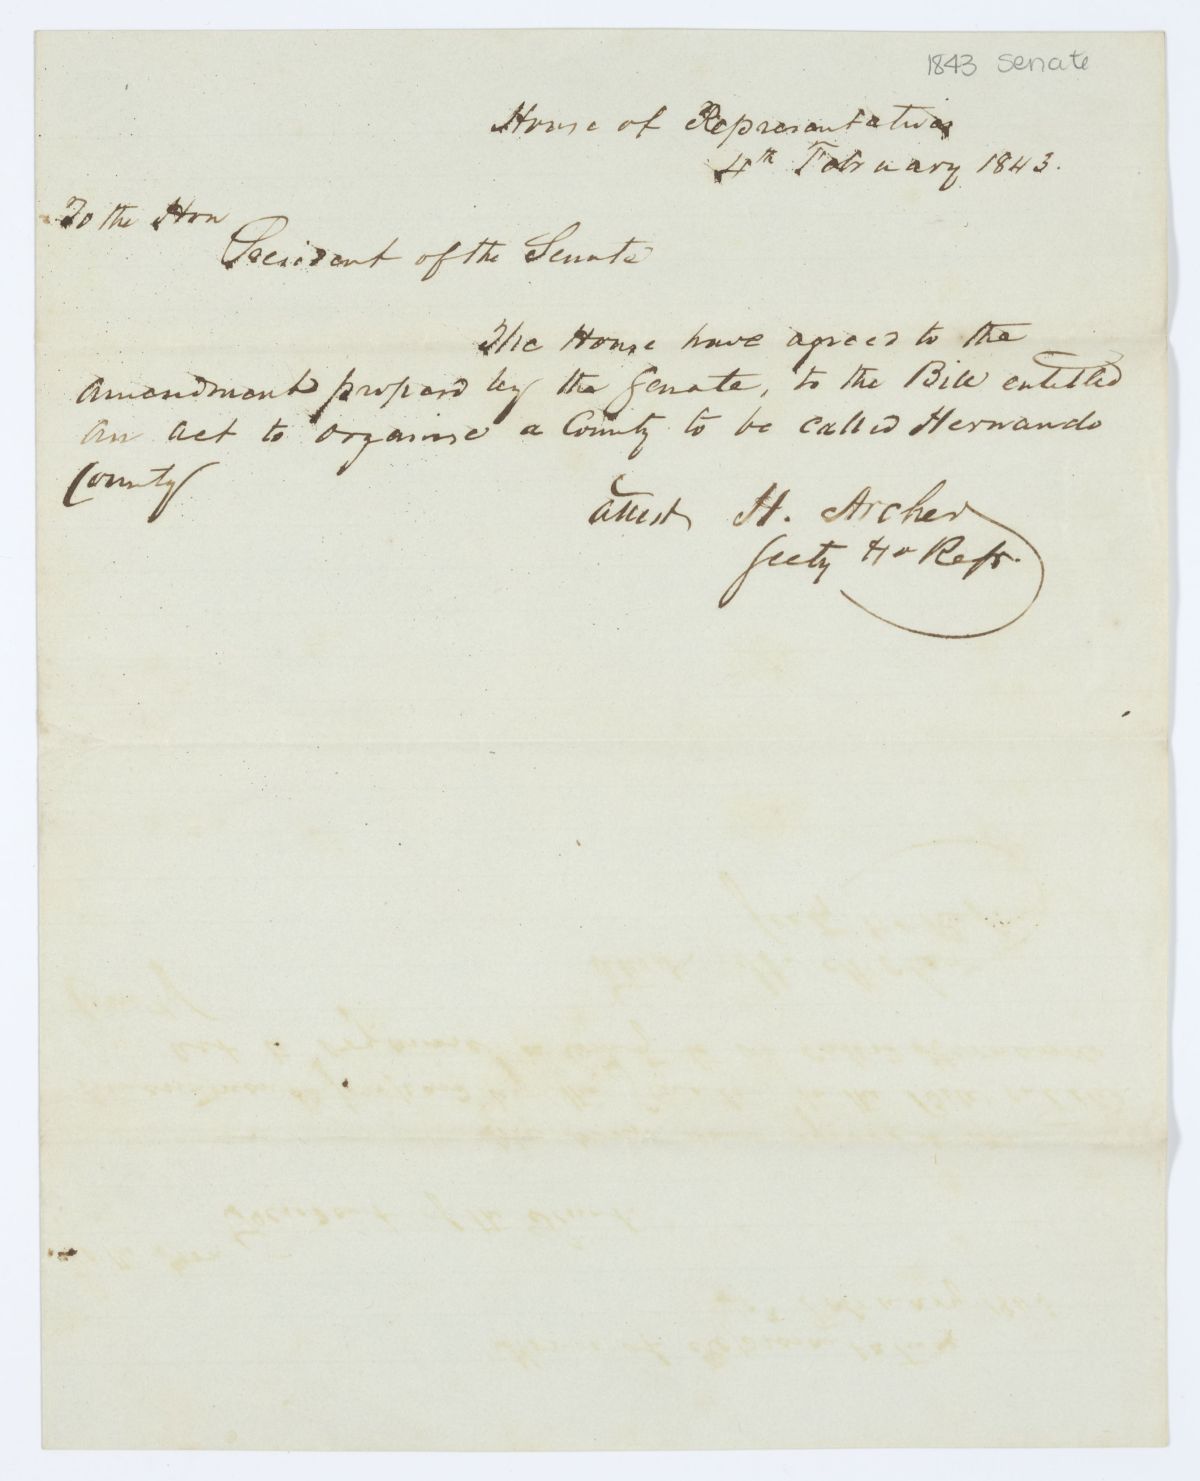 1843 Senate
House of Representatives
4th February 1843.
To the Hon
President of the Senate
The House have agreed to the
amendment proposed by the Senate, to the Bill entitled
An act to organise a County to be called Hernando
County
attest H. Archer
Secty Ho Reps.